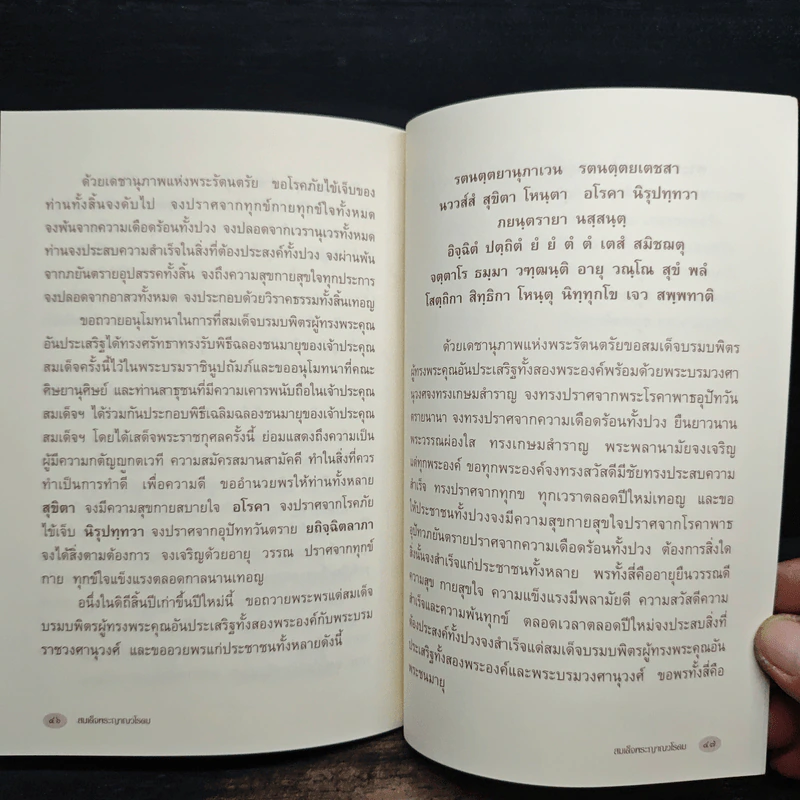 ด้วยเดชานุภาพแห่งพระรัตนตรัย ขอโรคภัยไข้เจ็บของ
ท่านทั้งสิ้นจงดับไป จงปราศจากทุกข์กายทุกข์ใจทั้งหมด
จงพ้นจากความเดือดร้อนทั้งปวง จงปลอดจากเวรานุเวรทั้งหมด
ท่านจงประสบความสำเร็จในสิ่งที่ต้องประสงค์ทั้งปวง จงผ่านพ้น
จากภยันตรายอุปสรรคทั้งสิ้น จงถึงความสุขกายสุขใจทุกประการ
จงปลอดจากอาสวทั้งหมด จงประกอบด้วยวิราคธรรมทั้งสิ้นเทอญ
ขอถวายอนุโมทนาในการที่สมเด็จบรมบพิตรผู้ทรงพระคุณ
อันประเสริฐได้ทรงศรัทธาทรงรับพิธีฉลองชนมายุของเจ้าประคุณ
สมเด็จครั้งนี้ไว้ในพระบรมราชินูปถัมภ์และขออนุโมทนาที่คณะ
ศิษยานุศิษย์ และท่านสาธุชนที่มีความเคารพนับถือในเจ้าประคุณ
สมเด็จฯ ได้ร่วมกันประกอบพิธีเฉลิมฉลองชนมายุของเจ้าประคุณ
สมเด็จฯ โดยได้เสด็จพระราชกุศลครั้งนี้ ย่อมแสดงถึงความเป็น
ผู้มีความกตัญญูกตเวที ความสมัครสมานสามัคคี ทำในสิ่งที่ควร
ทำเป็นการทำดี เพื่อความดี ขออำนวยพรให้ท่านทั้งหลาย
สุขิตา จงมีความสุขกายสบายใจ อโรคา จงปราศจากโรคภัย
ไข้เจ็บ นิรุปทฺทวา จงปราศจากอุปัททวันตราย ยถิจฺฉิตลาภา
จงได้สิ่งตามต้องการ จงเจริญด้วยอายุ วรรณ ปราศจากทุกข์
กาย ทุกข์ใจแข็งแรงตลอดกาลนานเทอญ
อนึ่งในดิถีสิ้นปีเก่าขึ้นปีใหม่นี้ ขอถวายพระพรแด่สมเด็จ
บรมบพิตรผู้ทรงพระคุณอันประเสริฐทั้งสองพระองค์กับพระบรม
ราชวงศานุวงศ์ และขออวยพรแก่ประชาชนทั้งหลายดังนี้
๔๖ สมเด็จพระญาณวโรดม
รตนตฺตยานุภาเวน รตนตฺตยเตชสา
นววสฺสํ สุขิตา โหนฺตา อโรคา นิรุปทฺทวา
ภยนฺตรายา นสฺสนฺตุ
อิจฺฉิตํ ปตฺถิตํ ยํ ยํ ตํ ตํ เตสํ สมิชฺฌตุ
จตฺตาโร ธมฺมา วฑฺฒนฺติ อายุ วณฺโณ สุขํ พลํ
โสตฺถิกา สิทฺธิกา โหนฺตุ นิททุกโข เจว สพฺพทาติ
ด้วยเดชานุภาพแห่งพระรัตนตรัยขอสมเด็จบรมบพิตร
ผู้ทรงพระคุณอันประเสริฐทั้งสองพระองค์พร้อมด้วยพระบรมวงศา
นุวงศจงทรงเกษมสำราญ จงทรงปราศจากพระโรคาพาธอุปัทวัน
ตรายนานา จงทรงปราศจากความเดือดร้อนทั้งปวง ยืนยาวนาน
พระวรรณผ่องใส ทรงเกษมสำราญ พระพลานามัยจงเจริญ
แด่ทุกพระองค์ ขอทุกพระองค์จงทรงสวัสดีมีชัยทรงประสบความ
สำเร็จ ทรงปราศจากทุกข ทุกเวราตลอดปีใหม่เทอญ และขอ
ให้ประชาชนทั้งปวงจงมีความสุขกายสุขใจปราศจากโรคาพาธ
อุปัทวภยันตรายปราศจากความเดือดร้อนทั้งปวง ต้องการสิ่งใด
สิ่งนั้นจงสำเร็จแก่ประชาชนทั้งหลาย พรทั้งสี่คืออายุยืนวรรณดี
ความสุข กายสุขใจ ความแข็งแรงมีพลามัยดี ความสวัสดีความ
สำเร็จและความพ้นทุกข์ ตลอดเวลาตลอดปีใหม่จงประสบสิ่งที่
ต้องประสงค์ทั้งปวงจงสำเร็จแด่สมเด็จบรมบพิตรผู้ทรงพระคุณอัน
ประเสริฐทั้งสองพระองค์และพระบรมวงศานุวงศ์ ขอพรทั้งสี่คือ
พระชนมายุ
สมเด็จพระญาณวโรดม ๔๗